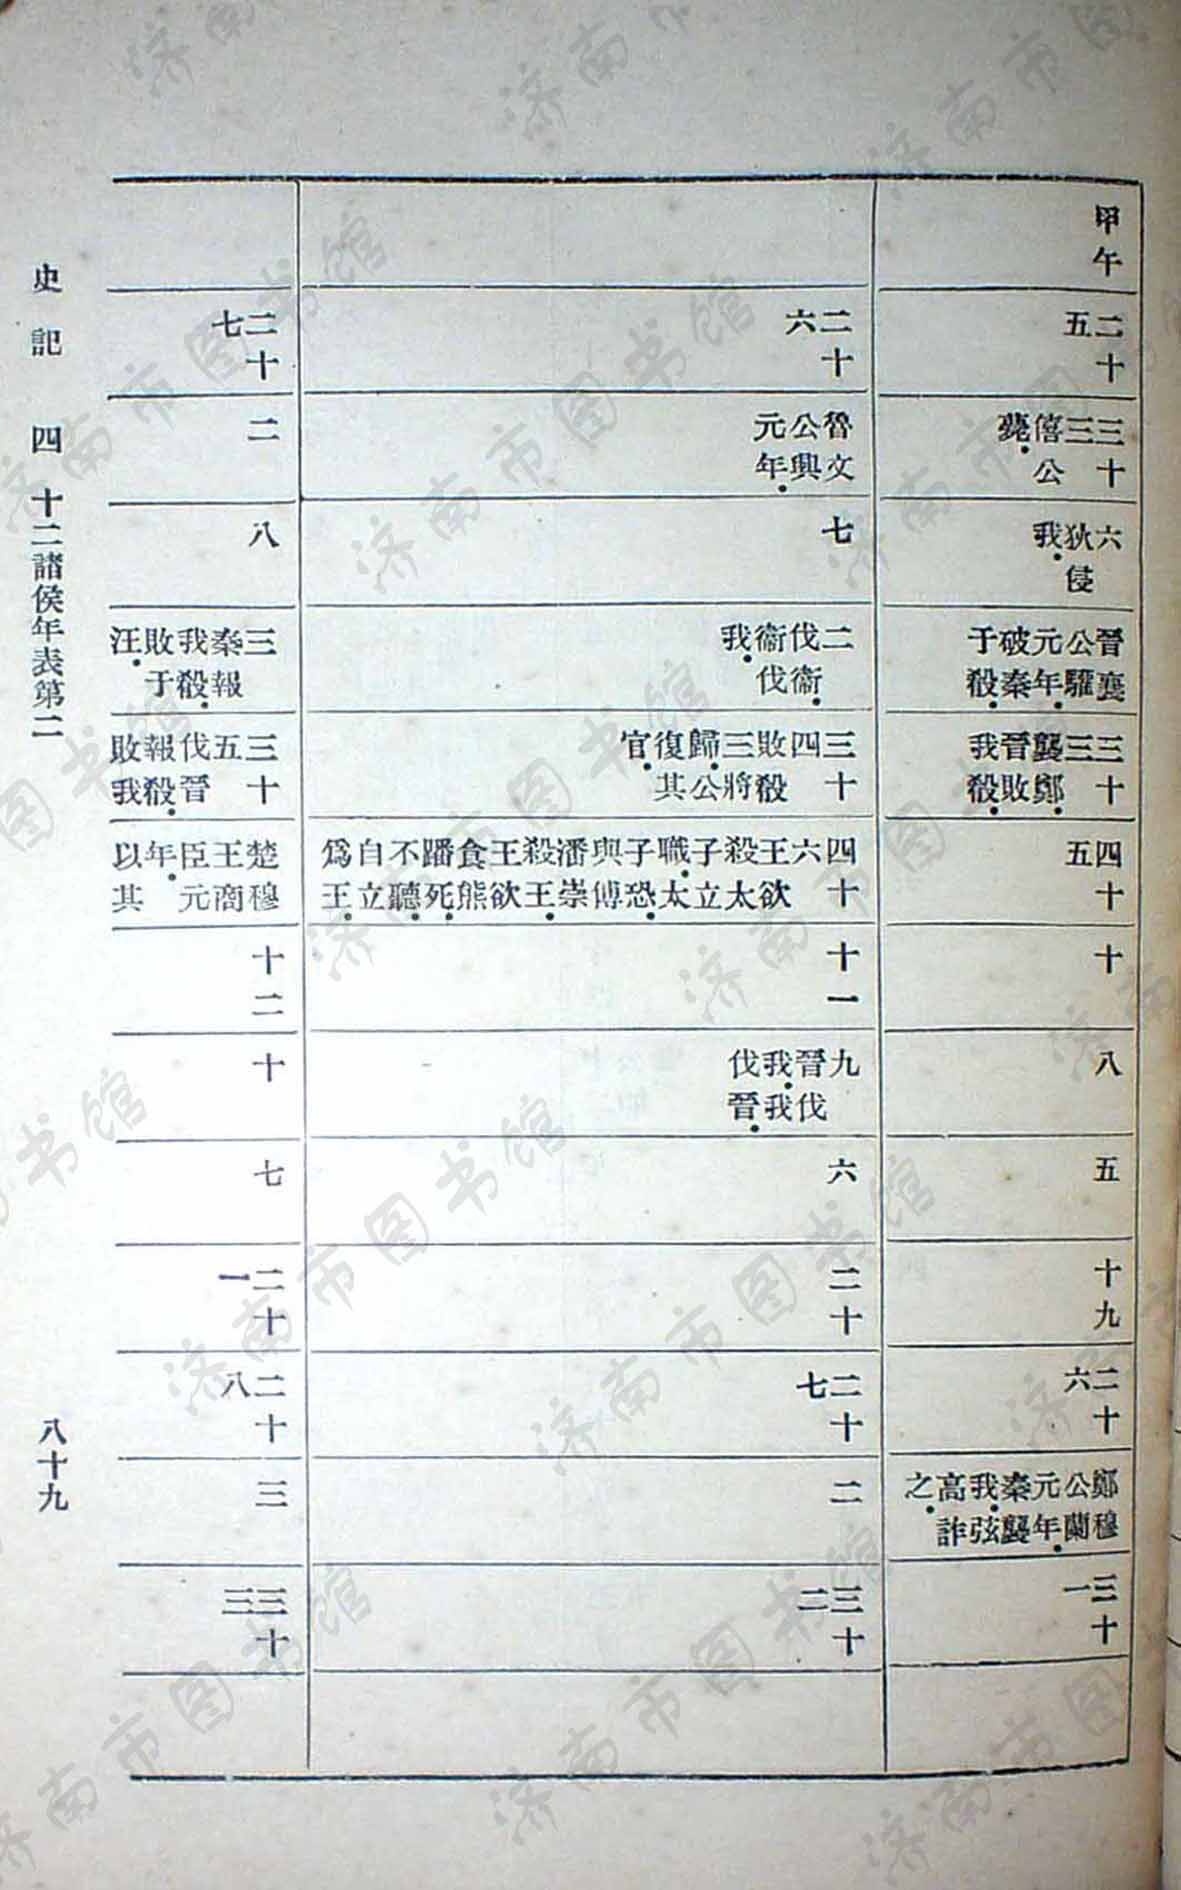 甲午
二十五
三十三僖公薨
六狄侵我
晉襄公驩元年破秦于殽
三十三襲鄭晉敗我殽
四十五
十
八
五
十九
二十六
鄭穆公蘭元年秦襲我弦高詐之
三十一
二十六
魯文公興元年
七
二伐衞衞伐我
三十四敗殽三將歸公復其官
四十六王欲殺太子立職太子恐與傅潘崇殺王王欲食熊蹯死不聽自立爲王
十一
九晉伐我我伐晉
六
二十
二十七
二
三十二
二十七
二
八
三秦報我殽敗于汪
三十五伐晉報殽敗我
楚穆王商臣元年以其
十二
十
七
二十一
二十八
三
三十三
史記 四 十二諸侯年表第二 八十九
济南市图书馆